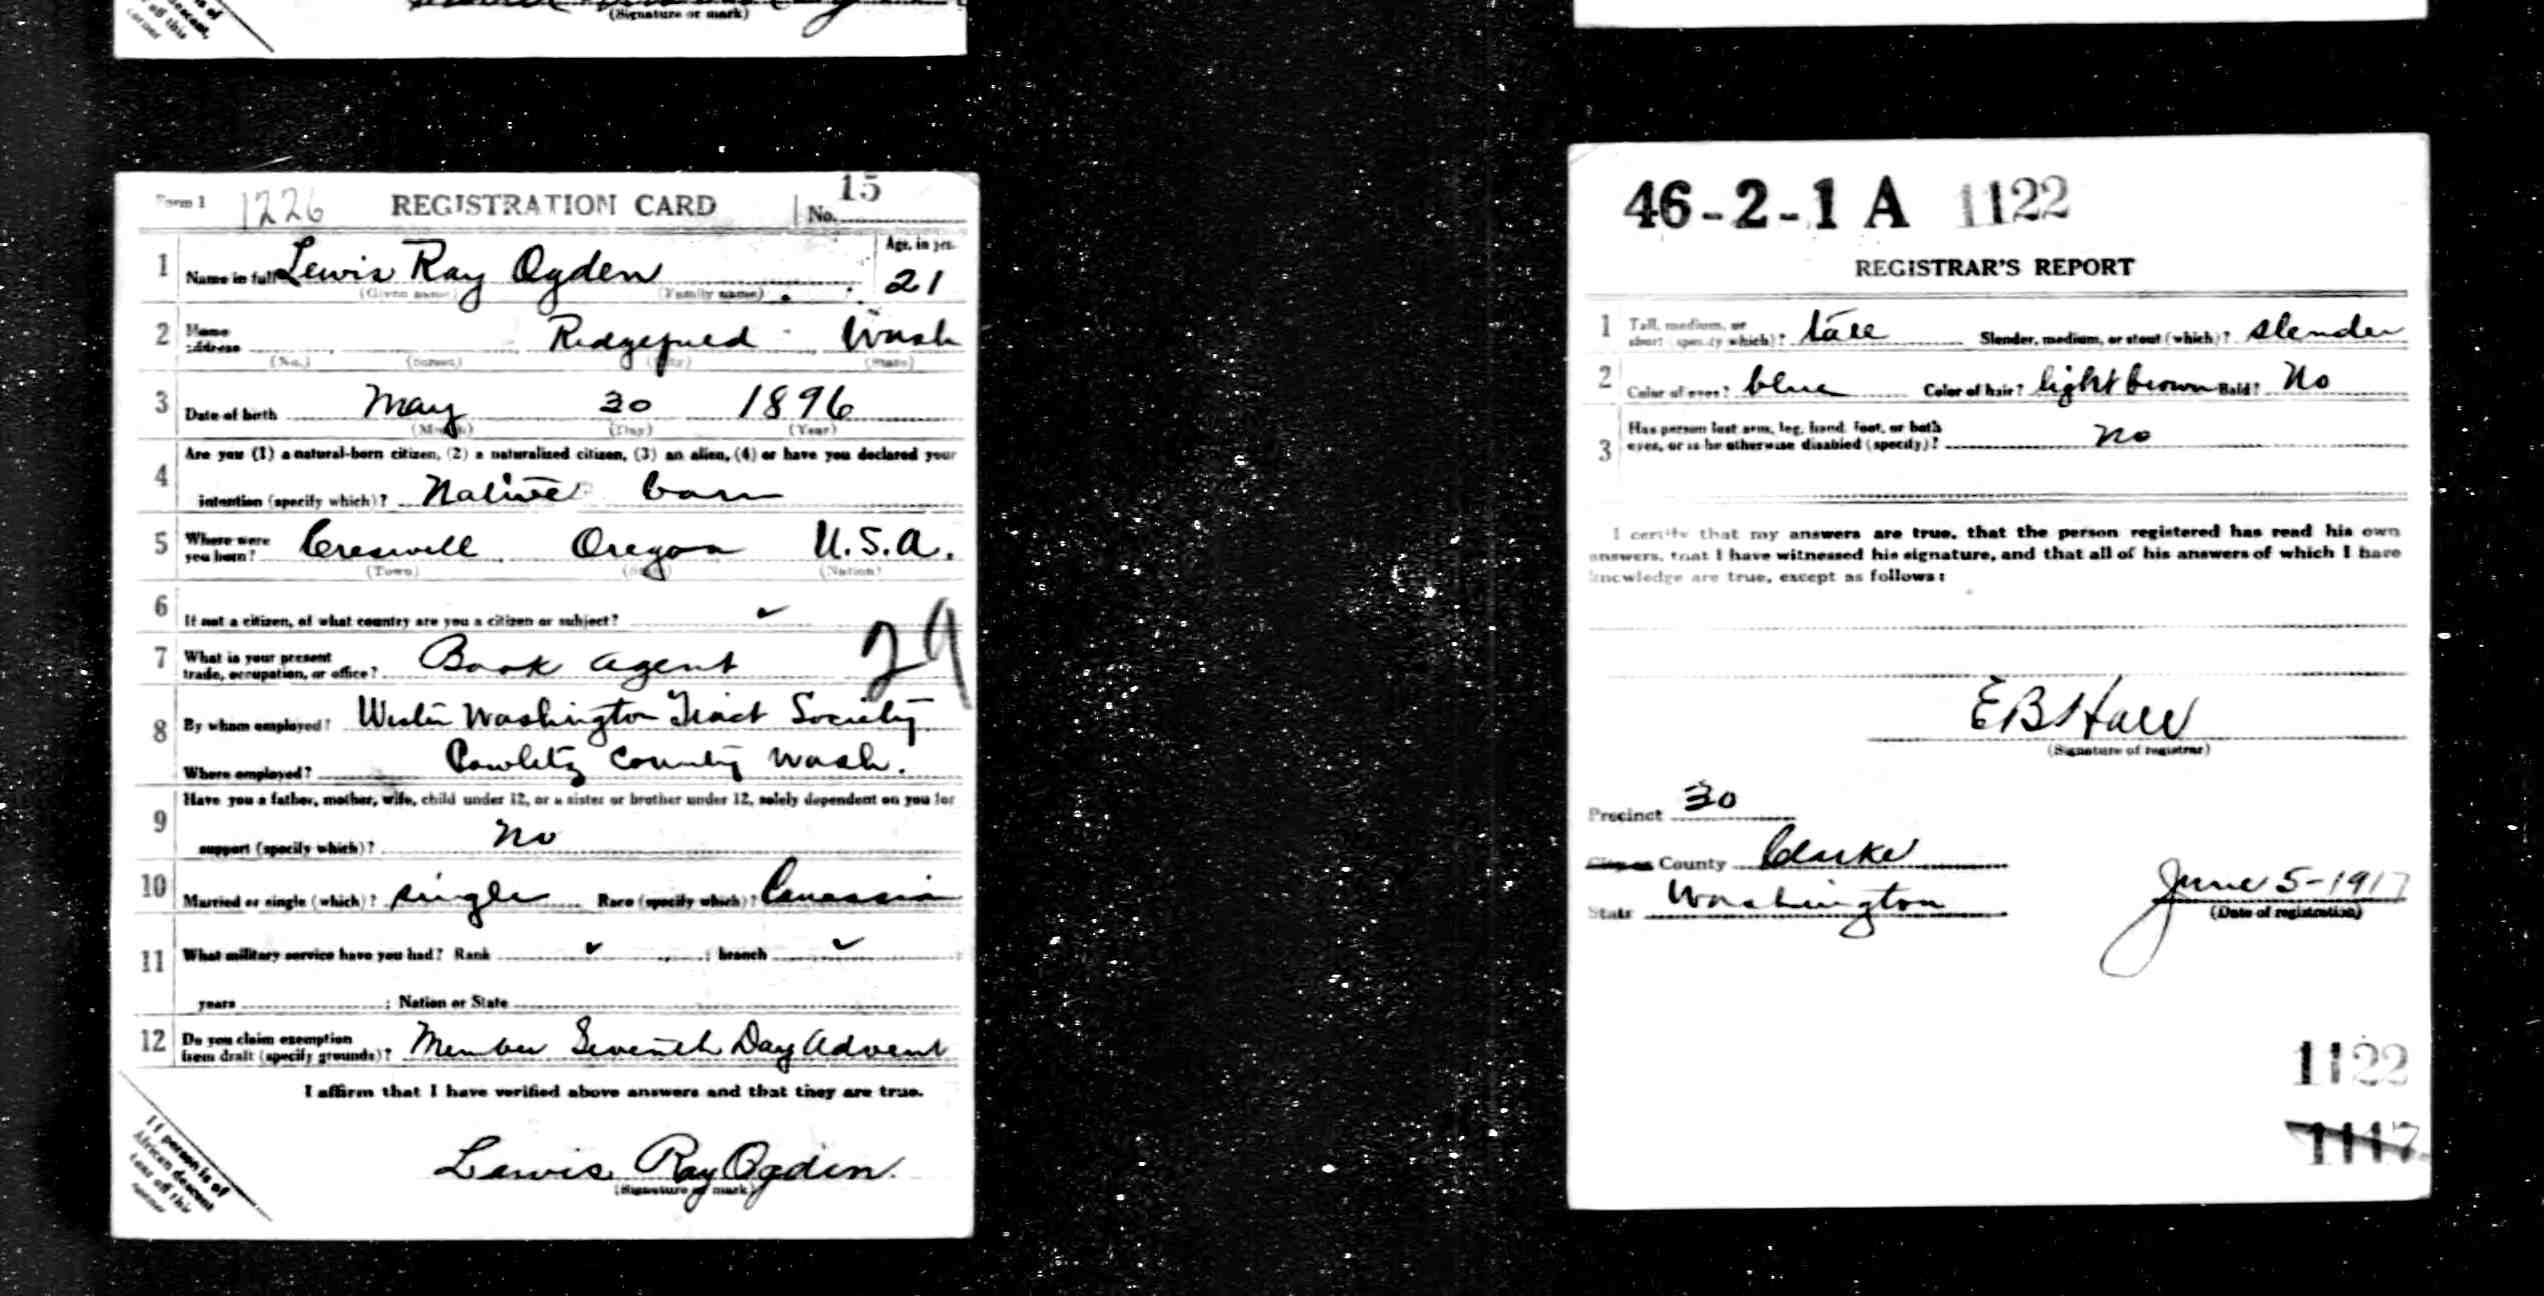 (Signature or mark)
Form 1 1226 REGISTRATION CARD No. 15
1 Name in full Lewis Ray Ogden Age, in yrs.
(Given name) (Family name) 21
2 Home address Ridgefield Wash
(No.) (Street) (City) (State)
3 Date of birth May 30 1896
(Month) (Day) (Year)
4 Are you (1) a natural-born citizen, (2) a naturalized citizen, (3) an alien, (4) or have you declared your
intention (specify which)? Native born
5 Where were you born? Creswell Oregon U.S.A.
(Town) (State) (Nation)
6 If not a citizen, of what country are you a citizen or subject? ✓
7 What is your present
trade, occupation, or office? Book agent 29
8 By whom employed? Western Washington Tract Society
Where employed? Cowlitz County Wash.
9 Have you a father, mother, wife, child under 12, or a sister or brother under 12, solely dependent on you for
support (specify which)? No
10 Married or single (which)? single Race (specify which)? Caucassin
11 What military service have you had? Rank ✓ ; branch ✓
years ; Nation or State
12 Do you claim exemption
from draft (specify grounds)? Member Seventh Day Advent
I affirm that I have verified above answers and that they are true.
Lewis Ray Ogden.
(Signature or mark)
If person is of
African descent
tear off this
corner
46-2-1 A 1122
REGISTRAR'S REPORT
1 Tall, medium, or
short (specify which)? tall Slender, medium, or stout (which)? slender
2 Color of eyes? blue Color of hair? light brown Bald? No
3 Has person lost arm, leg, hand, foot, or both
eyes, or is he otherwise disabled (specify)? No
I certify that my answers are true, that the person registered has read his own
answers, that I have witnessed his signature, and that all of his answers of which I have
knowledge are true, except as follows:
E B Hall
(Signature of registrar)
Precinct 30
City or County Clarke
State Washington
June 5-1917
(Date of registration)
1122
1117